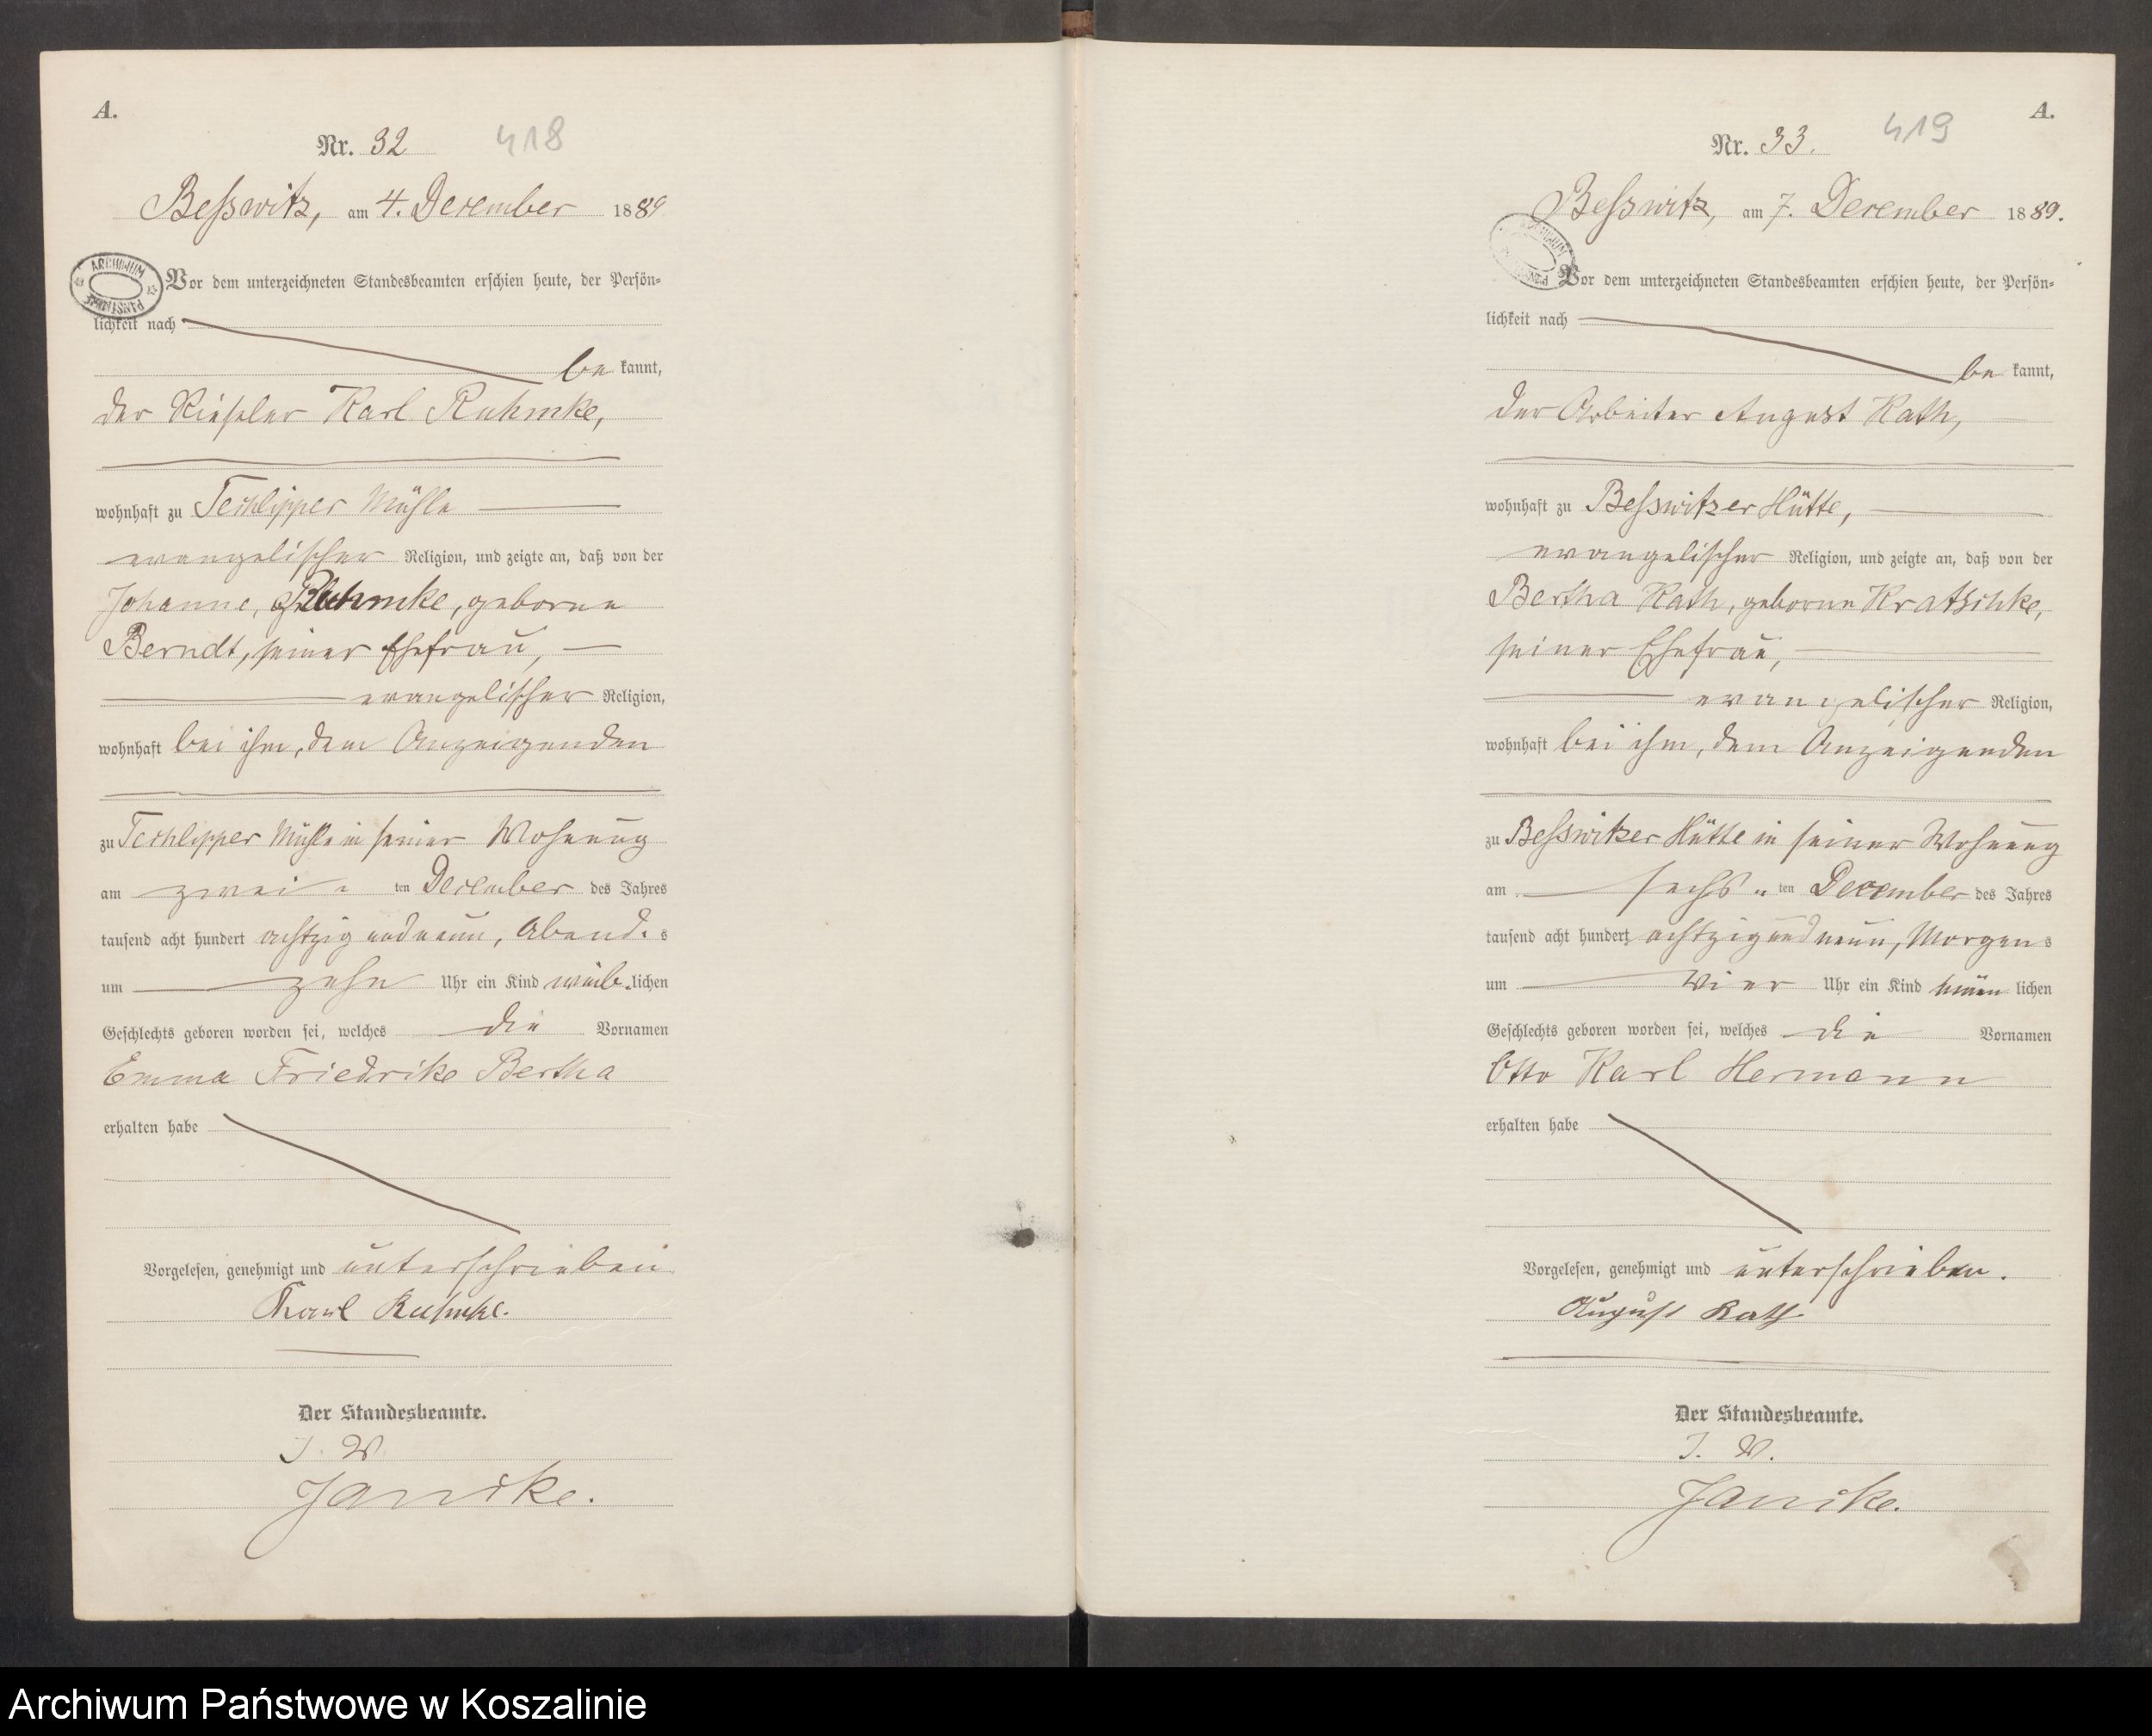 A.
Nr. 32
418
Beßwitz, am 4. December 1889
ARCHIWUM PAŃSTWOWE
Vor dem unterzeichneten Standesbeamten erschien heute, der Persön-
lichkeit nach
be kannt,
der Rieseler Karl Ruhmke,
wohnhaft zu Techlipper Mühle
evangelischer Religion, und zeigte an, daß von der
Johanne, Ruhmke, geborne
Berndt, seiner Ehefrau,
evangelischer Religion,
wohnhaft bei ihm, dem Anzeigenden
zu Techlipper Mühle in seiner Wohnung
am zwei ten December des Jahres
tausend acht hundert achtzig und neun, Abend s
um zehn Uhr ein Kind weib lichen
Geschlechts geboren worden sei, welches die Vornamen
Emma Friedrike Bertha
erhalten habe
Vorgelesen, genehmigt und unterschrieben
Karl Ruhmke.
Der Standesbeamte.
J. V.
Janike.
A.
Nr. 33.
419
Beßwitz, am 7. December 1889.
Vor dem unterzeichneten Standesbeamten erschien heute, der Persön-
lichkeit nach
be kannt,
der Arbeiter August Rath,
wohnhaft zu Beßwitzer Hütte,
evangelischer Religion, und zeigte an, daß von der
Bertha Rath, geborne Kratschke,
seiner Ehefrau,
evangelischer Religion,
wohnhaft bei ihm, dem Anzeigenden
zu Beßwitzer Hütte in seiner Wohnung
am sechs ten December des Jahres
tausend acht hundert achtzig und neun, Morgen s
um vier Uhr ein Kind männ lichen
Geschlechts geboren worden sei, welches die Vornamen
Otto Karl Hermann
erhalten habe
Vorgelesen, genehmigt und unterschrieben.
August Rath
Der Standesbeamte.
J. V.
Janike.
Archiwum Państwowe w Koszalinie